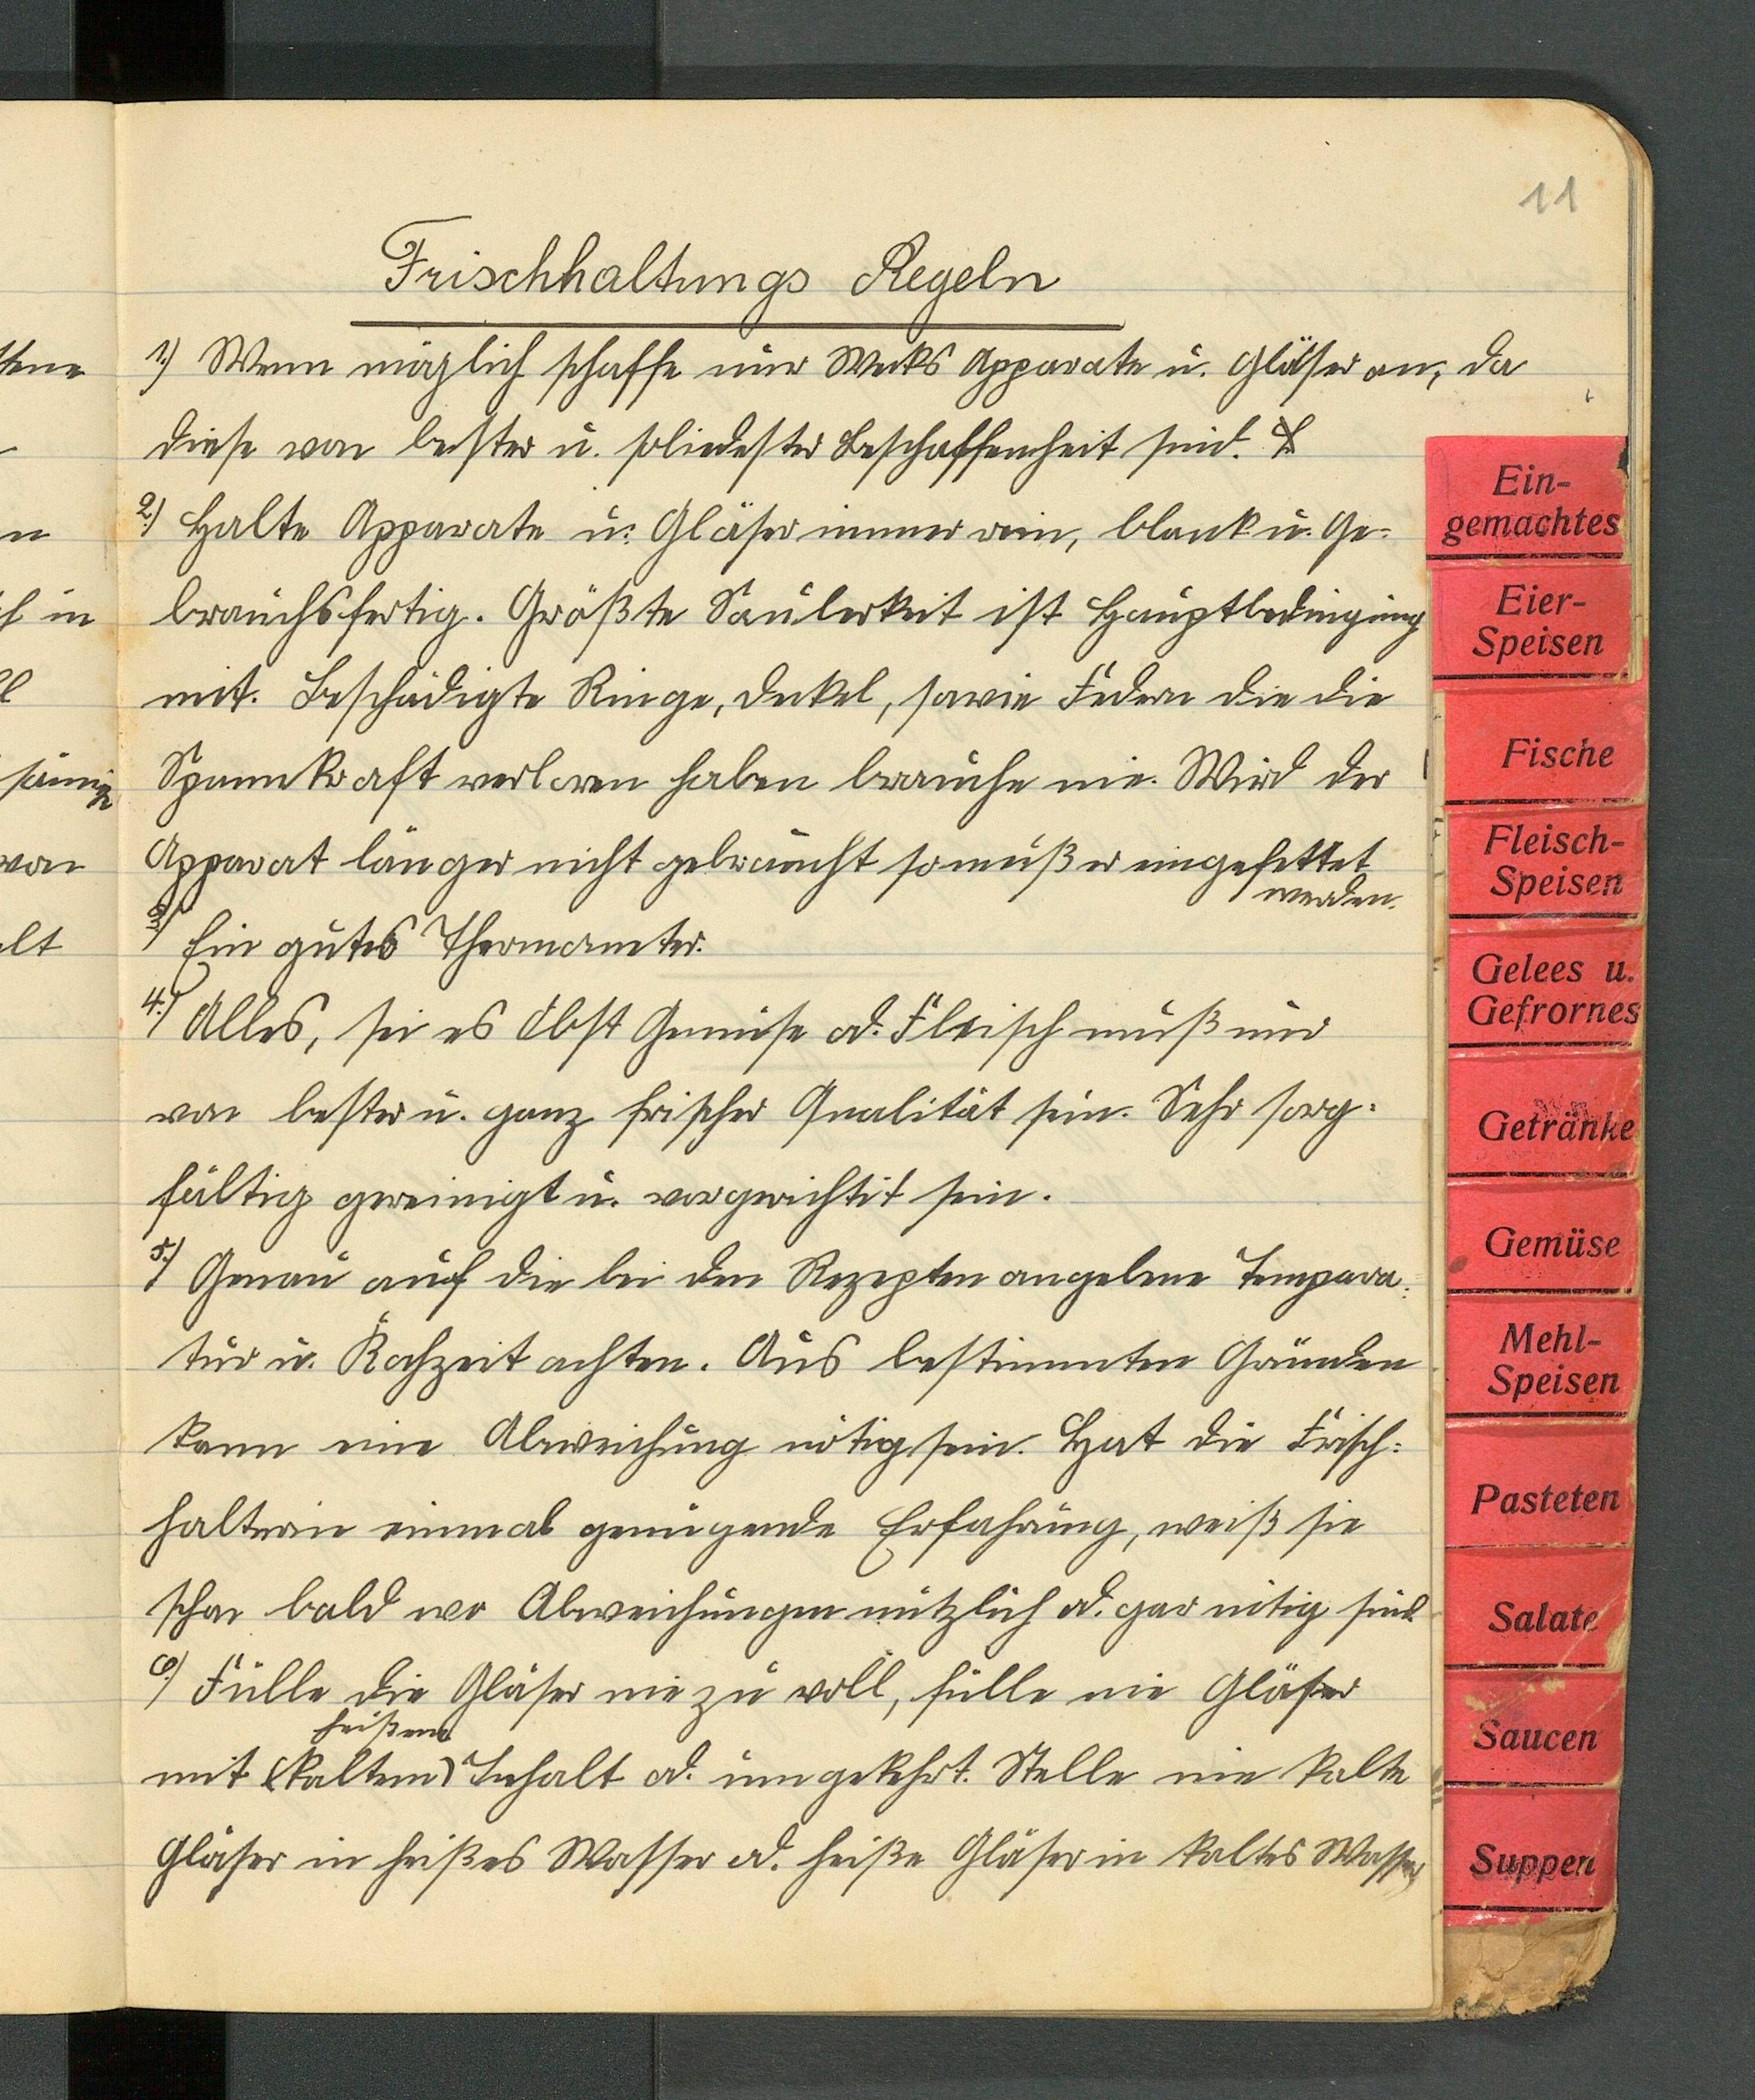 11
Frischhaltungs Regeln
1.) Wenn möglich schaffe nur Weks Apparate u. Gläser an, da
diese von bester u. soliedester Beschaffenheit sind.
2.) Halte Apparate u. Gläser immer rein, blank u. Ge-
brauchsfertig. Größte Sauberkeit ist Hauptbedingung
mit. Beschädigte Ringe, Deckel, sowie Federn die die
Spannkraft verloren haben brauche nie. Wird der
Apparat länger nicht gebraucht so muß er eingefettet
werden.
3.) Ein gutes Thermometer.
4.) Alles, sei es Obst Gemüse od. Fleisch muß nur
von bester u. ganz frischer Qualität sein. Sehr sorg-
fältig gereinigt u. vorgerichtet sein.
5.) Genau auf die bei den Rezepten angebene Tempera-
tur u. Kochzeit achten. Aus bestimmten Gründen
kann eine Abweichung nötig sein. Hat die Frisch-
halterin einmal genügende Erfahrung, weiß sie
schon bald wo Abweichungen nützlich od. gar nötig sind.
6.) Fülle die Gläser nie zu voll, fülle nie Gläser
heißem
mit (kaltem) Inhalt od. umgekehrt. Stelle nie kalte
Gläser in heißes Wasser od. heiße Gläser in kaltes Wasser
Ein-
gemachtes
Eier-
Speisen
Fische
Fleisch-
Speisen
Gelees u.
Gefrornes
Getränke
Gemüse
Mehl-
Speisen
Pasteten
Salate
Saucen
Suppen